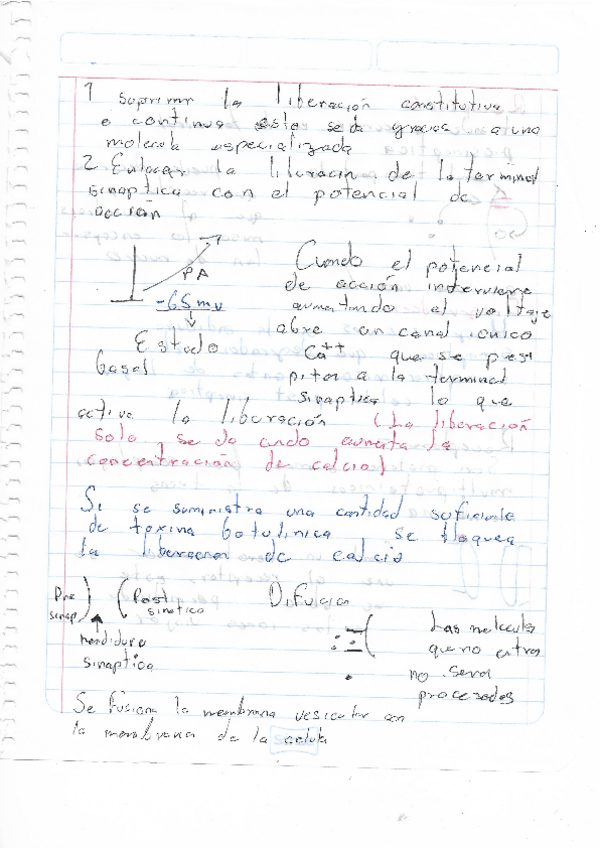 1 Suprimir la liberación constitutiva
o continua esto se da gracias a una
molecula especializada
2. Enlazar la liberación de la terminal
sinaptica con el potencial de
acción
PA
-65mv
Estado
basal
Cuando el potencial
de acción interviene
aumentando el voltaje
abre un canal ionico
Ca++ que se preci
pitan a la terminal
sinaptica lo que
activa la liberación (La liberación
solo se da cuando aumenta la
concentración de calcio)
Si se suministra una cantidad suficiente
de toxina botulinica se bloquea
la liberacion de calcio
Pre
sinap
Post
sinatico
hendidura
sinaptica
Difucion
Las moleculas
que no entran
no seran
procesados
Se fusiona la membrana vesicular con
la membrana de la celula